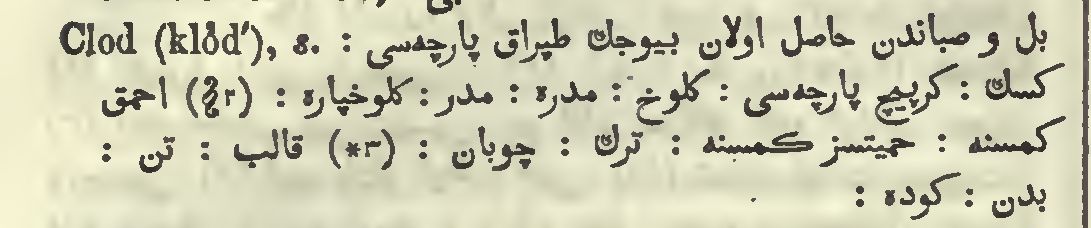 Clod (klŏd′), s. : بل و صباندن حاصل اولان بیوجك طپراق پارچه‌سی
كسك : كرپیچ پارچه‌سی : كلوخ : مدره : مدر : كلوخپاره : (r) احمق
كمسنه : حمیتسز كمسنه : ترك : چوبان : (*r) قالب : تن :
بدن : كوده :